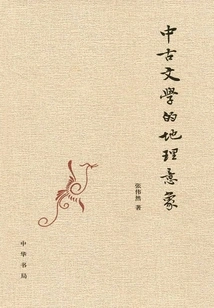 中古文學的地理意象
张伟然 著
中华书局